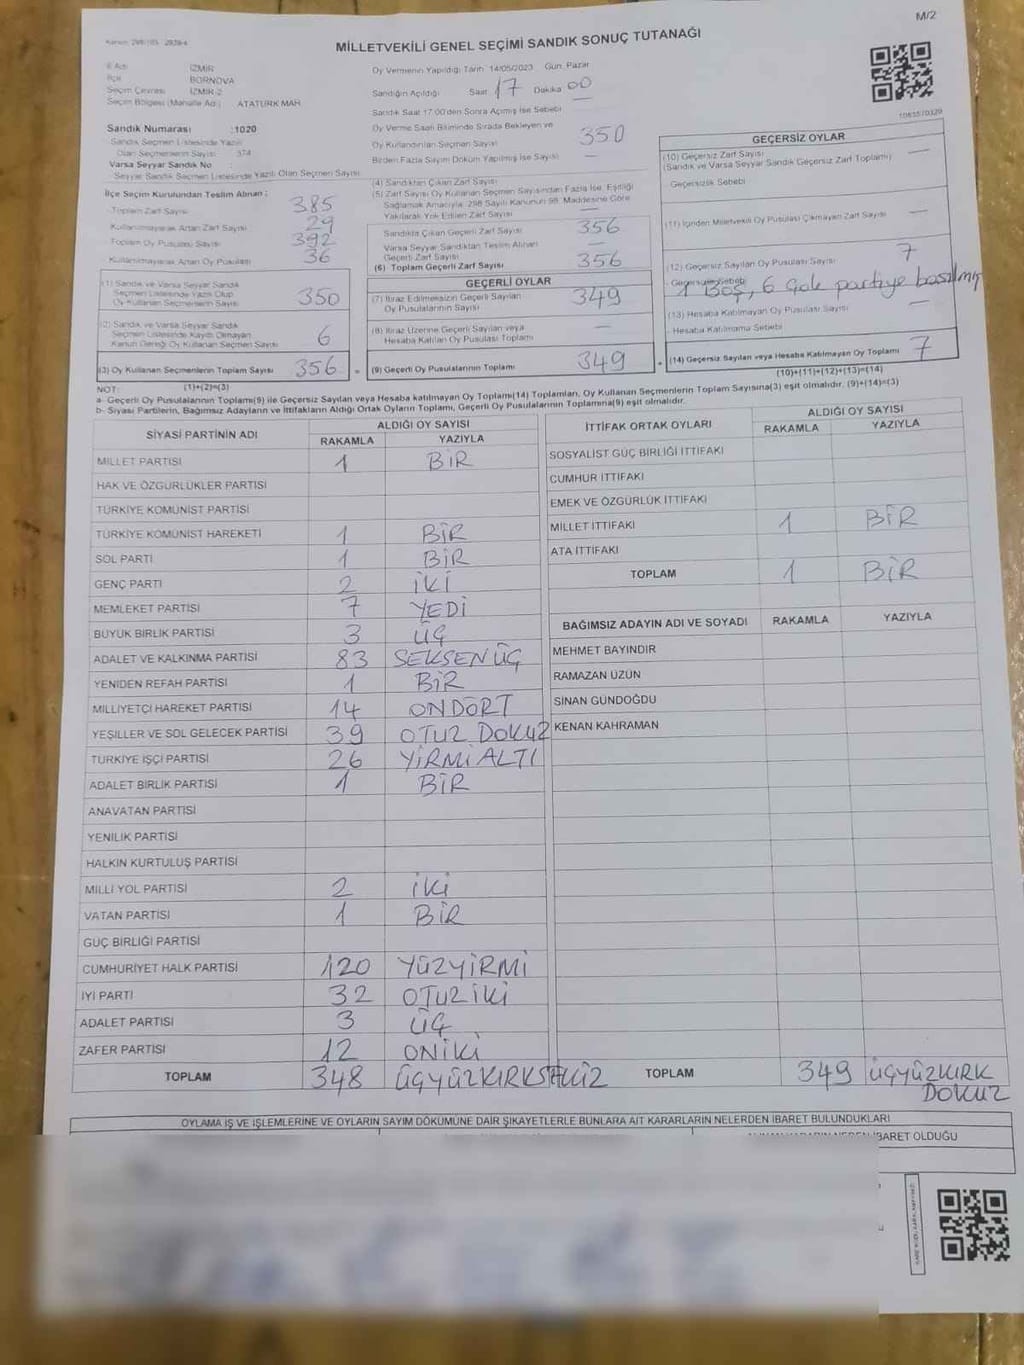 M/2
MİLLETVEKİLİ GENEL SEÇİMİ SANDIK SONUÇ TUTANAĞI
İl Adı İZMİR
İlçe BORNOVA
Seçim Çevresi İZMİR-2
Seçim Bölgesi (Mahalle Ad.) ATATÜRK MAH.
Sandık Numarası :1020
Sandık Seçmen Listesinde Yazılı
Olan Seçmenlerin Sayısı 374
Varsa Seyyar Sandık No
Seyyar Sandık Seçmen Listesinde Yazılı Olan Seçmen Sayısı
Oy Vermenin Yapıldığı Tarih 14/05/2023 Gün: Pazar
Sandığın Açıldığı Saat 17 Dakika 00
Sandık Saat 17.00'den Sonra Açılmış İse Sebebi
Oy Verme Saati Bitiminde Sırada Bekleyen ve
Oy Kullandırılan Seçmen Sayısı 350
Birden Fazla Sayım Döküm Yapılmış İse Sayısı —
İlçe Seçim Kurulundan Teslim Alınan ;
Toplam Zarf Sayısı 385
Kullanılmayarak Artan Zarf Sayısı 29
Toplam Oy Pusulası Sayısı 392
Kullanılmayarak Artan Oy Pusulası 36
(1) Sandık ve Varsa Seyyar Sandık
Seçmen Listesinde Yazılı Olup
Oy Kullanan Seçmen Sayısı 350
(2) Sandık ve Varsa Seyyar Sandık
Seçmen Listesinde Kaydı Olmayan
Kanun Gereği Oy Kullanan Seçmen Sayısı 6
(3) Oy Kullanan Seçmenlerin Toplam Sayısı 356
(4) Sandıktan Çıkan Zarf Sayısı
(5) Zarf Sayısı Oy Kullanan Seçmen Sayısından Fazla İse, Eşitliği
Sağlamak Amacıyla, 298 Sayılı Kanunun 98. Maddesine Göre
Yakılarak Yok Edilen Zarf Sayısı —
Sandıkta Çıkan Geçerli Zarf Sayısı 356
Varsa Seyyar Sandıktan Teslim Alınan
Geçerli Zarf Sayısı —
(6) Toplam Geçerli Zarf Sayısı 356
GEÇERLİ OYLAR
(7) İtiraz Edilmeksizin Geçerli Sayılan
Oy Pusulalarının Sayısı 349
(8) İtiraz Üzerine Geçerli Sayılan veya
Hesaba Katılan Oy Pusulası Toplamı —
(9) Geçerli Oy Pusulalarının Toplamı 349
GEÇERSİZ OYLAR
(10) Geçersiz Zarf Sayısı —
(Sandık ve Varsa Seyyar Sandık Geçersiz Zarf Toplamı)
Geçersizlik Sebebi
(11) İçinden Milletvekili Oy Pusulası Çıkmayan Zarf Sayısı —
(12) Geçersiz Sayılan Oy Pusulası Sayısı 7
Geçersizlik Sebebi 1 Boş, 6 çok partiye basılmış
(13) Hesaba Katılmayan Oy Pusulası Sayısı —
Hesaba Katılmama Sebebi
(14) Geçersiz Sayılan veya Hesaba Katılmayan Oy Toplamı 7
(10)+(11)+(12)+(13)=(14)
NOT: (1)+(2)=(3)
a- Geçerli Oy Pusulalarının Toplamı(9) ile Geçersiz Sayılan veya Hesaba katılmayan Oy Toplamı(14) Toplamları, Oy Kullanan Seçmenlerin Toplam Sayısına(3) eşit olmalıdır. (9)+(14)=(3)
b- Siyasi Partilerin, Bağımsız Adayların ve İttifakların Aldığı Ortak Oyların Toplamı, Geçerli Oy Pusulalarının Toplamına(9) eşit olmalıdır.
SİYASİ PARTİNİN ADI ALDIĞI OY SAYISI
RAKAMLA YAZIYLA
MİLLET PARTİSİ 1 BİR
HAK VE ÖZGÜRLÜKLER PARTİSİ
TÜRKİYE KOMÜNİST PARTİSİ
TÜRKİYE KOMÜNİST HAREKETİ 1 BİR
SOL PARTİ 1 BİR
GENÇ PARTİ 2 İKİ
MEMLEKET PARTİSİ 7 YEDİ
BÜYÜK BİRLİK PARTİSİ 3 ÜÇ
ADALET VE KALKINMA PARTİSİ 83 SEKSEN ÜÇ
YENİDEN REFAH PARTİSİ 1 BİR
MİLLİYETÇİ HAREKET PARTİSİ 14 ONDÖRT
YEŞİLLER VE SOL GELECEK PARTİSİ 39 OTUZ DOKUZ
TÜRKİYE İŞÇİ PARTİSİ 26 YİRMİ ALTI
ADALET BİRLİK PARTİSİ 1 BİR
ANAVATAN PARTİSİ
YENİLİK PARTİSİ
HALKIN KURTULUŞ PARTİSİ
MİLLİ YOL PARTİSİ 2 İKİ
VATAN PARTİSİ 1 BİR
GÜÇ BİRLİĞİ PARTİSİ
CUMHURİYET HALK PARTİSİ 120 YÜZYİRMİ
İYİ PARTİ 32 OTUZ İKİ
ADALET PARTİSİ 3 ÜÇ
ZAFER PARTİSİ 12 ONİKİ
TOPLAM 348 ÜÇYÜZKIRKSEKİZ
İTTİFAK ORTAK OYLARI ALDIĞI OY SAYISI
RAKAMLA YAZIYLA
SOSYALİST GÜÇ BİRLİĞİ İTTİFAKI
CUMHUR İTTİFAKI
EMEK VE ÖZGÜRLÜK İTTİFAKI
MİLLET İTTİFAKI 1 BİR
ATA İTTİFAKI
TOPLAM 1 BİR
BAĞIMSIZ ADAYIN ADI VE SOYADI RAKAMLA YAZIYLA
MEHMET BAYINDIR
RAMAZAN ÜZÜN
SİNAN GÜNDOĞDU
KENAN KAHRAMAN
TOPLAM 349 ÜÇYÜZKIRK
DOKUZ
OYLAMA İŞ VE İŞLEMLERİNE VE OYLARIN SAYIM DÖKÜMÜNE DAİR ŞİKAYETLERLE BUNLARA AİT KARARLARIN NELERDEN İBARET BULUNDUKLARI
İBARET OLDUĞU